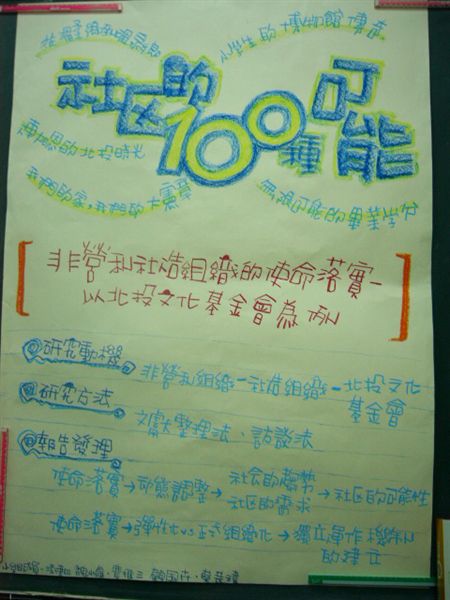 小學生的博物館傳奇
社区的100種可能
專屬的北投時光
我們的家,我們的大憲章
無限可能的畢業學分
非營利社造組織的使命落實-
以北投文化基金會為例
研究動機
非營利組織-社造組織-北投文化
基金會
研究方法
文獻整理法、訪談法
報告發現
使命落實→形態調整→社会的趨勢
社区的需求→社区的可能性
使命落實→彈性化vs正式組織化→獨立運作機制
的建立
小組組員: